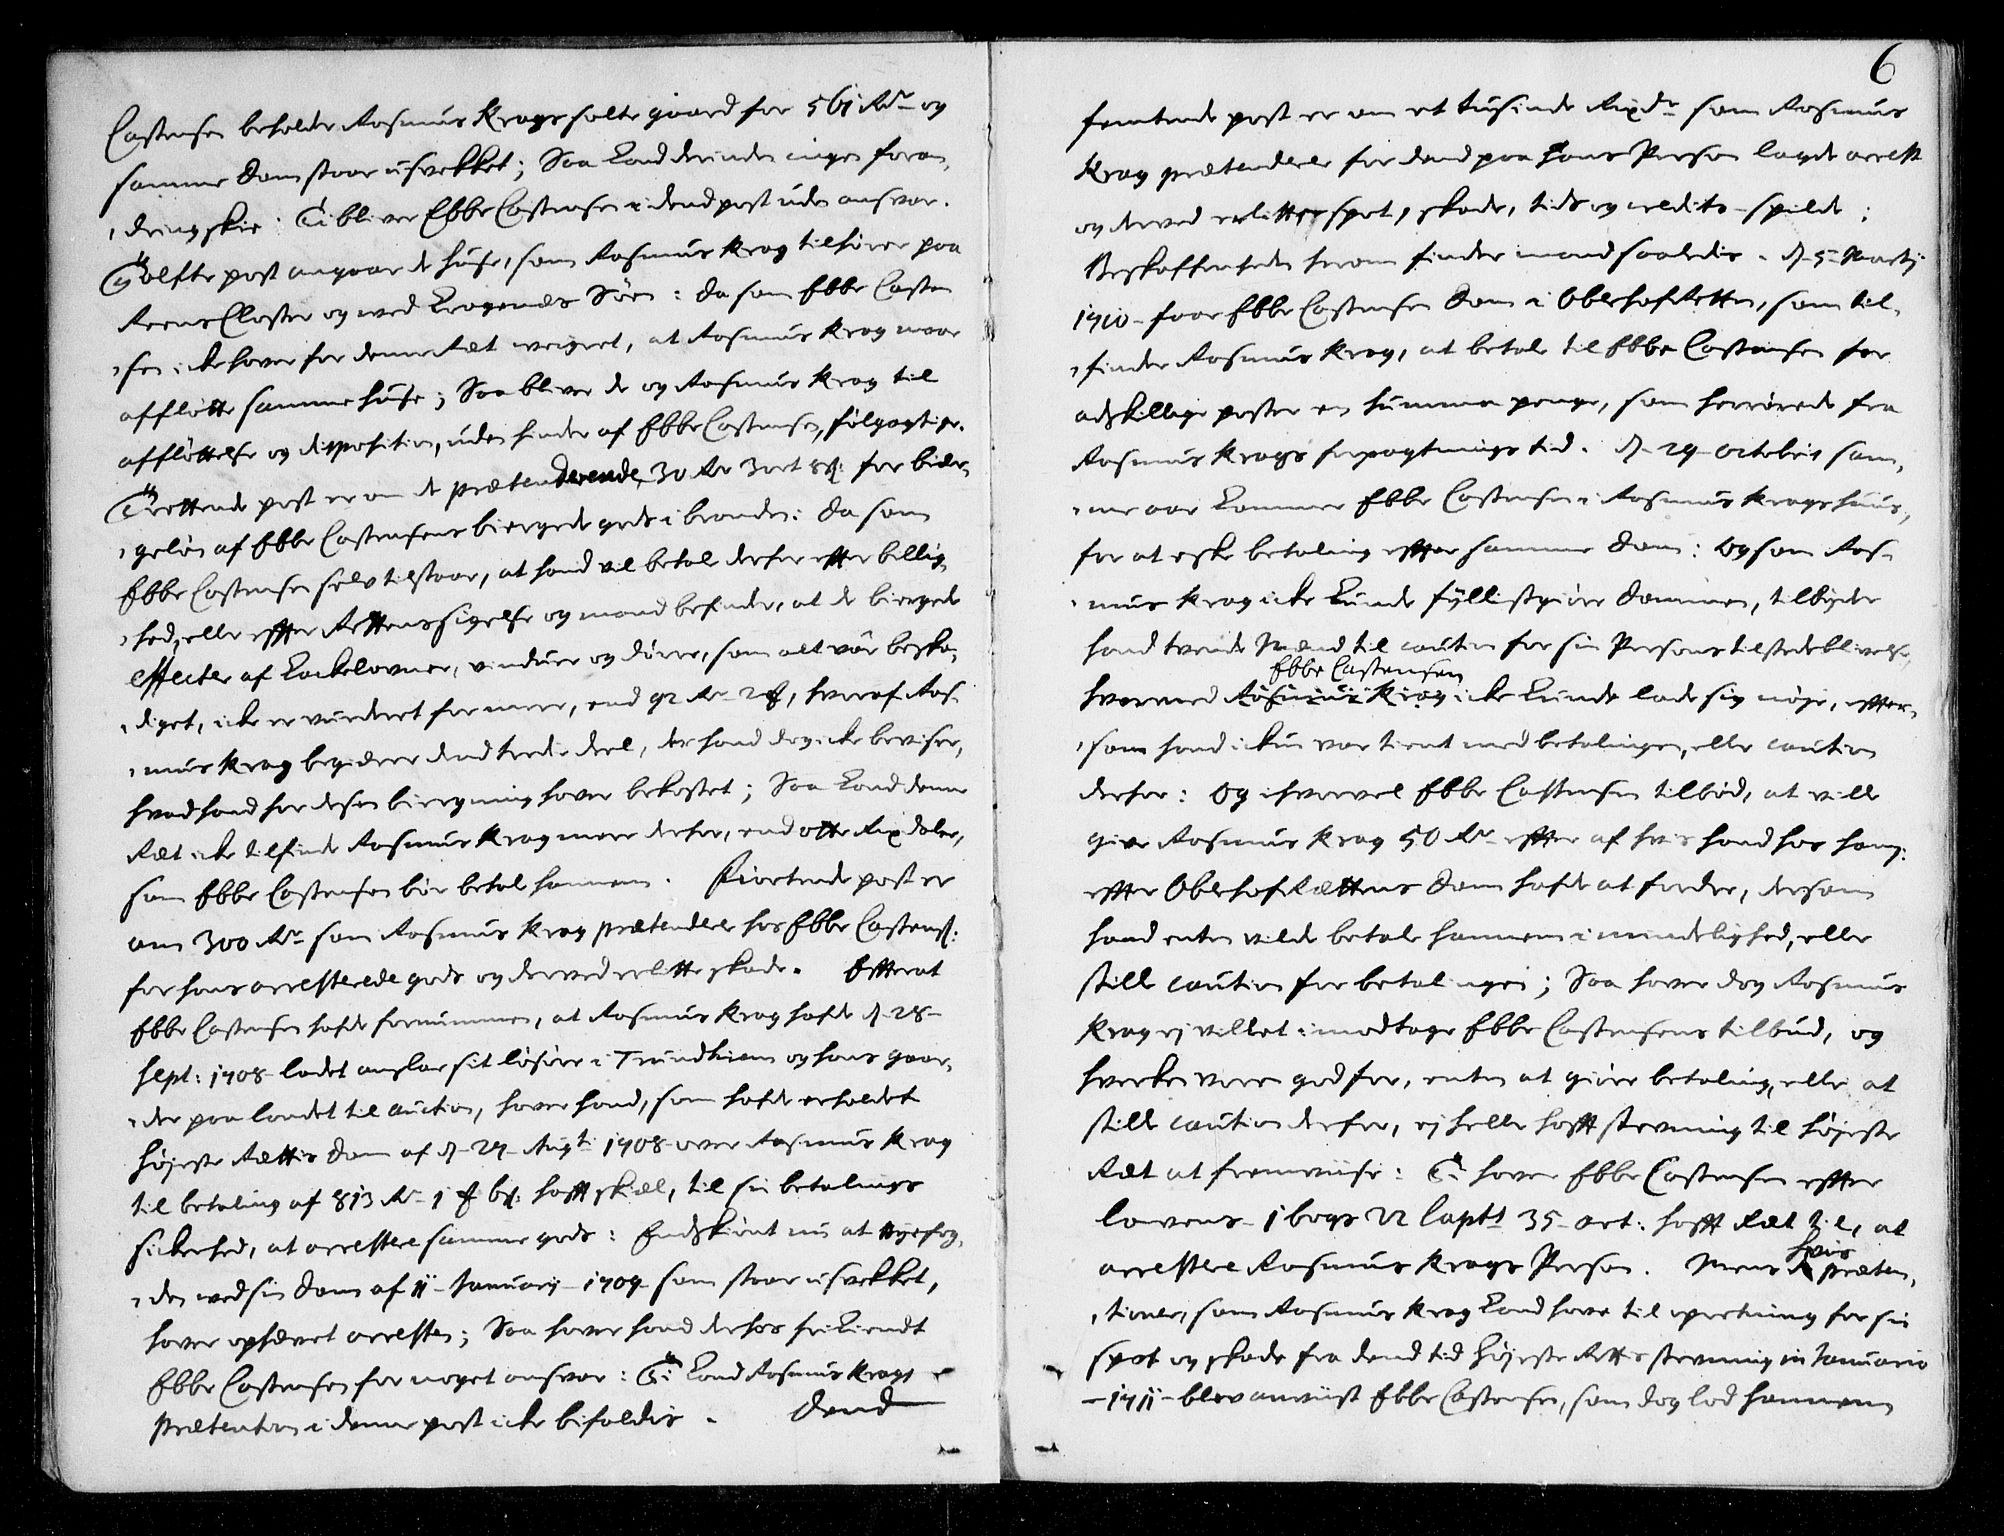 Castensen beholde Rasmus Krags halte gaard for 561 Rdr og
samme dom staar usvekket; Saa kand derinden ingen foran-
dring skie: Ti bliver Ebbe Castensen i dend post uden ansvar.
Tolfte post angaar de huse, som Rasmus Krag tilhører paa
Reens Closter og ved Kragenæs Søen: da som Ebbe Casten
sen icke haver for denne Ræt weigret, at Rasmus Krag maae
afflötte samme huse; Saa bliver de og Rasmus Krag til
afflöttelse og disposition, uden hinder af Ebbe Castensen, følgagtige.
Trettende post er om de prætenderende 30 Rdr 3 ort 8 s: for bier-
geløn af Ebbe Castensens biergede gods i branden: da som
Ebbe Castensen selv tilstaar, at hand vil betale derfor efter billig-
hed, eller efter Rettens sigelse og mand befinder, at de biergede
effecter af kackelovner, vinduer og dörre, som alt var beska-
diget, icke er vurderet for mere, end 92 Rdr 2 ort, hvoraf Ras-
mus Krag begierer dend tredie deel, der hand dog icke beviser,
hvad hand for deßen biergning haver bekostet; Saa kand denne
Ræt icke tilfinde Rasmus Krag mere derfor, end otte Rixdaler,
som Ebbe Castensen bör betale hannem. Fiortende post er
om 300 Rdr som Rasmus Krag prætenderer hos Ebbe Castens:
for hans arresterede gods og derved erlitte skade. Efter at
Ebbe Castensen hafde fornummen, at Rasmus Krag hafde d. 28
Sept: 1708 ladet anslae sit lösöre i Trundhiem og hans gaar-
der paa landet til auction, haver hand, som hafde erholdet
Höjeste Rettis dom af d. 27 Augti 1708 over Rasmus Krag
til betaling af 813 Rdr 1 ort 6 s: haft skiel, til sin betalings
sickerhed, at arrestere samme gods: Endskiönt nu at byefog-
den ved sin dom af 11 January 1709 som staar usvekket,
haver ophævet arresten; Saa haver hand derhos frikiendt
Ebbe Castensen for noget ansvar: Ti kand Rasmus Krags
prætention i denne post icke bifaldis. Dend
6
femtende post er om et tusinde Rixdr som Rasmus
Krag prætenderer for dend paa hans Person lagde arrest
og derved erlitte spot, skade, tids og credits-spilde;
Beskaffenheden herom finder mand saaledis. d. 5 Martij
1710 faar Ebbe Castensen dom i OberhofRetten, som til-
finder Rasmus Krag, at betale til Ebbe Castensen for
adskillige poster en summa penge, som herrörede fra
Rasmus Krags forpagtnings tid. d. 29 octobris sam-
me aar kommer Ebbe Castensen i Rasmus Krags huus,
for at eske betaling efter samme dom: og som Ras-
mus Krag icke kunde fyllistgiöre dommen, tilbyder
hand tvende Mænd til caution for sin Persons tilstedeblivelse,
Ebbe Castensen
hvormed Rasmus Krag icke kunde lade sig nöje, efter-
som hand ickun var tient med betalingen, eller caution
derfor: Og ihvorvel Ebbe Castensen tilböd, at ville
give Rasmus Krag 50 Rdr efter af hvis hand hos ham:
efter OberhofRættens dom hafde at fordre, dersom
hand enten vilde betale hannem i mindelighed, eller
stille caution for betalingen; Saa haver dog Rasmus
Krag ej villet imodtage Ebbe Castensens tilbud, og
hverken været god for, enten at giöre betaling, eller at
stille caution derfor, ej heller haft stevning til höjeste
Ræt at fremviise: Ti haver Ebbe Castensen efter
lovens 1 bogs 22 Captt 35 art: haft Ræt til, at
arrestere Rasmus Krags Person. Mens
hvis
præten-
tioner, som Rasmus Krag kand have til opretning for sin
spot og skade fra dend tid höjeste Rettis stevning in Januario
1711 blev anviist Ebbe Castensen, som dog lod hannem